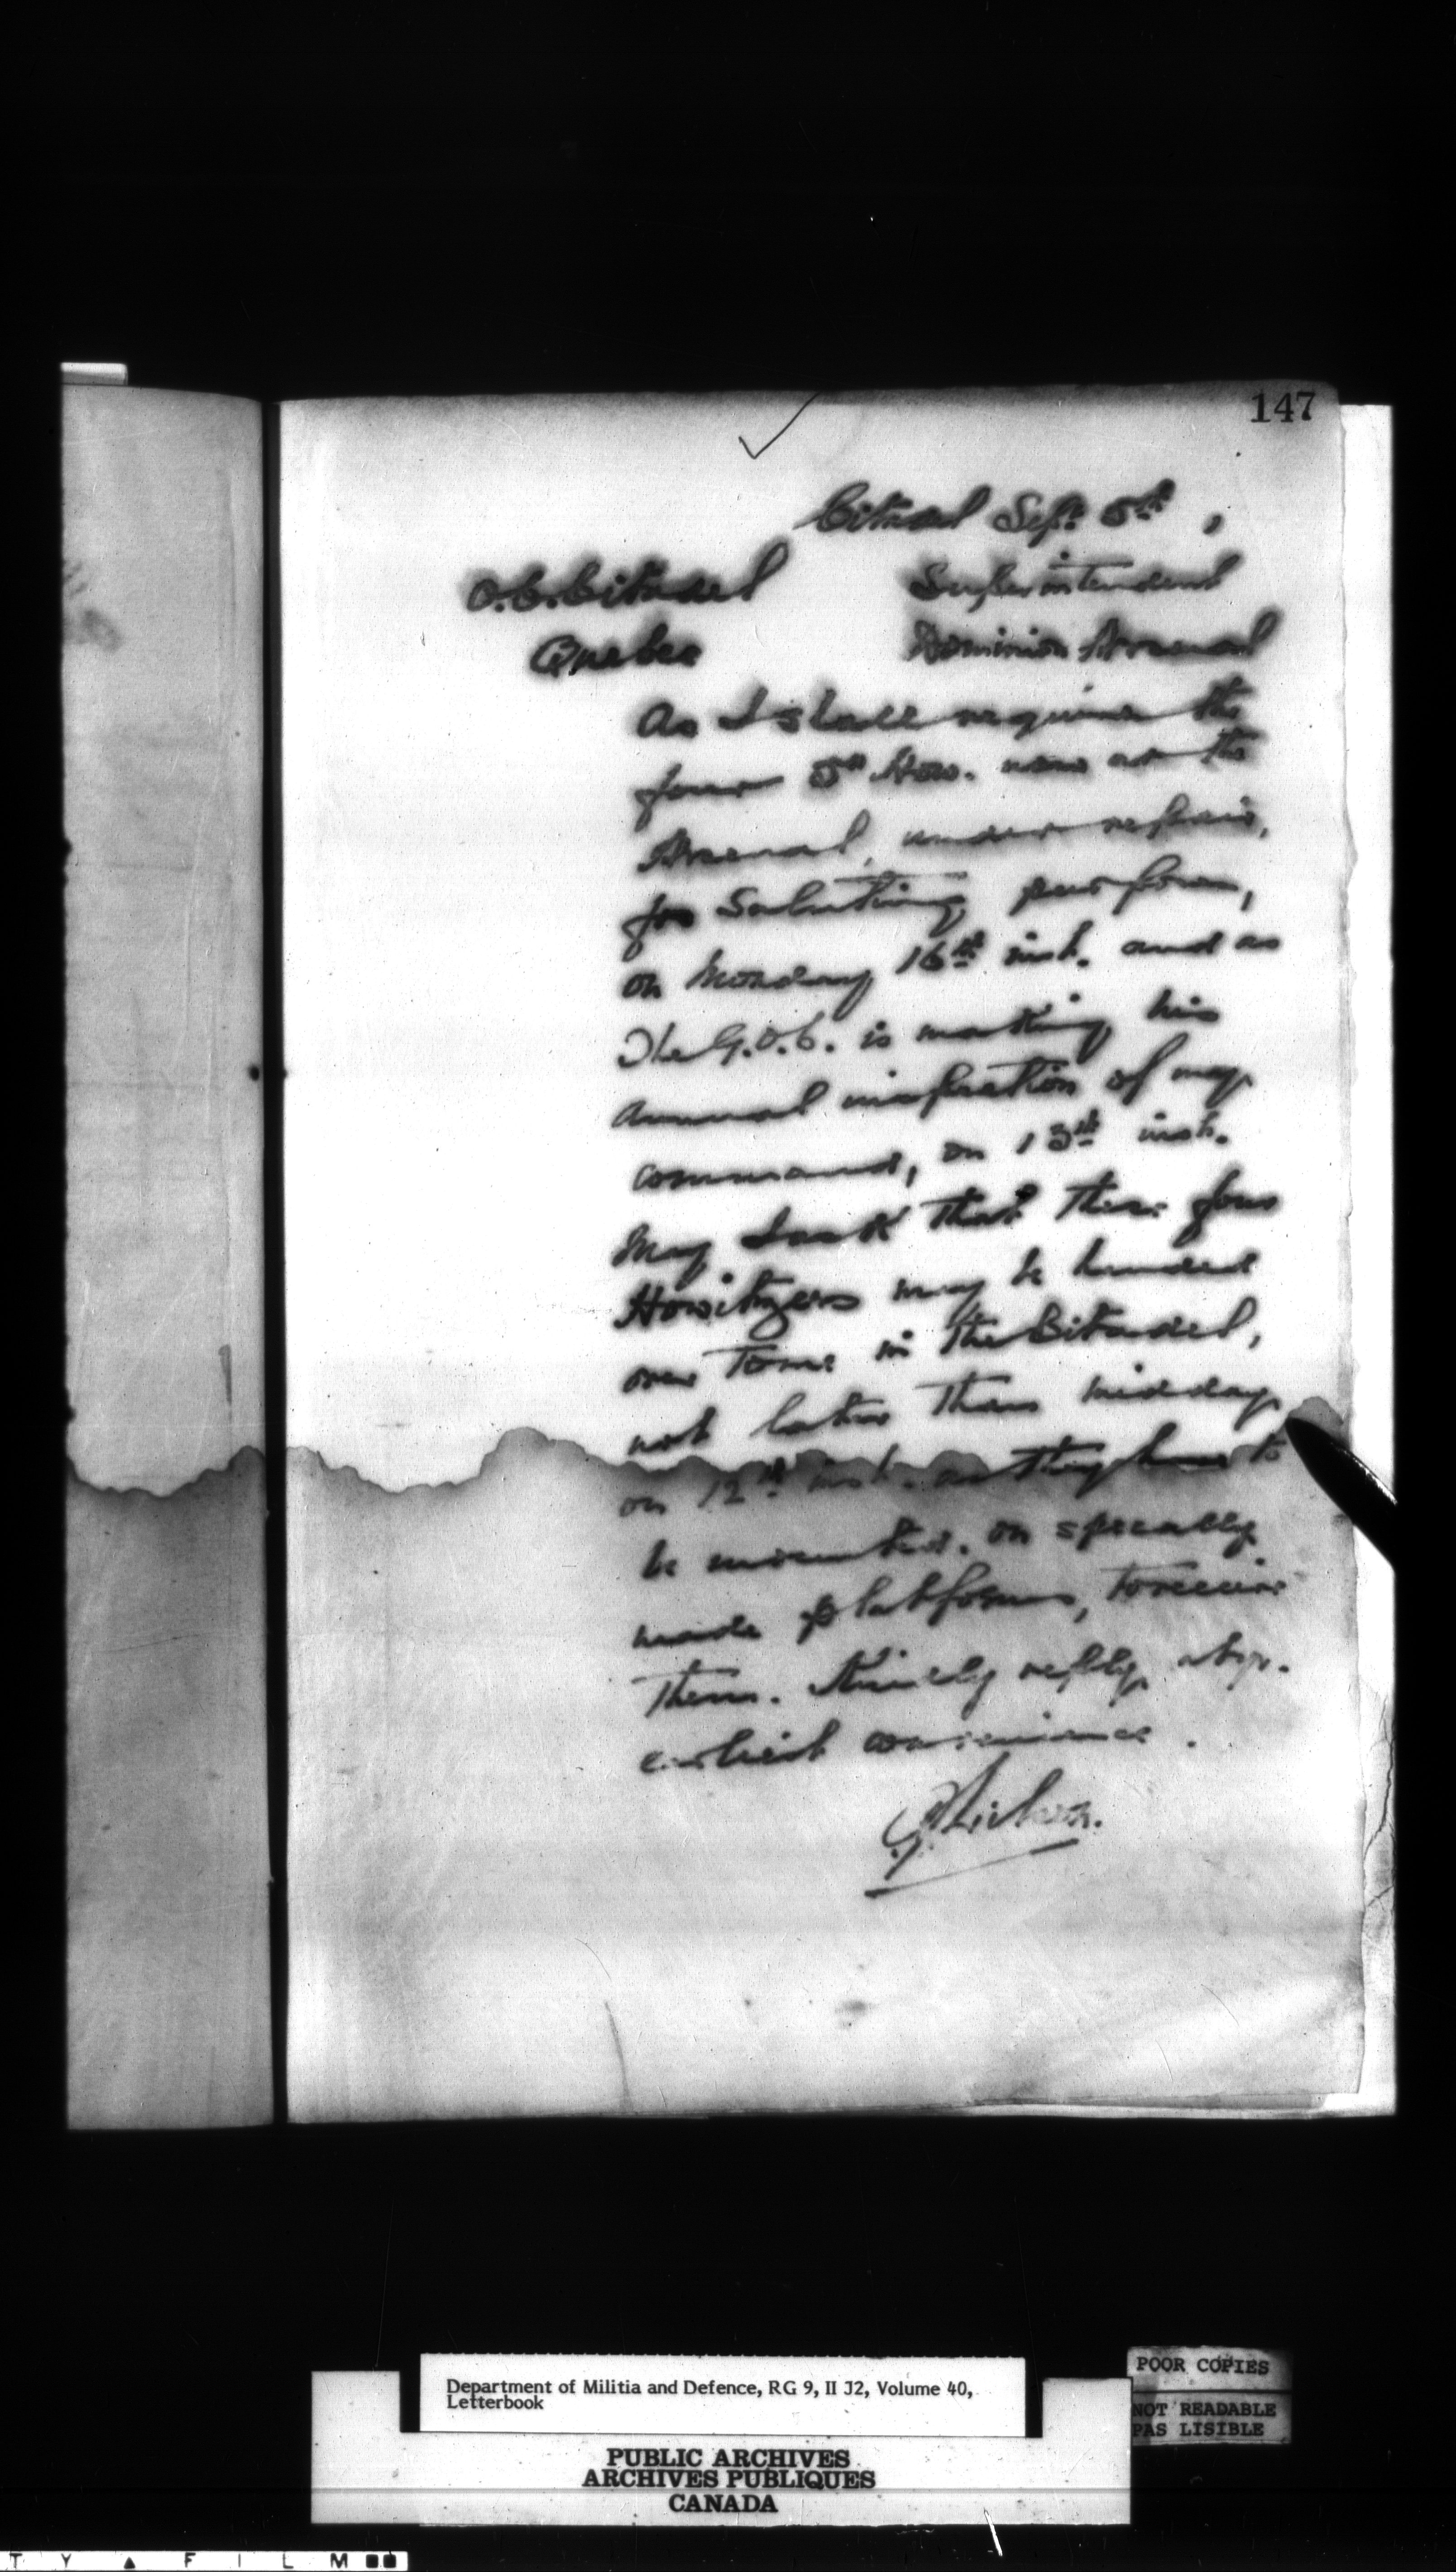 147
Citadel Sept. 5th,
O.C. Citadel
Quebec
Superintendent
Dominion Arsenal
As I shall require the
four 5" How. now at the
Arsenal, under repair,
for Saluting purposes,
on Monday 16th inst. and as
The G.O.C. is making his
annual inspection of my
command, on 13th inst.
May I ask that these four
Howitzers may be handed
over to me in the Citadel,
not later than midday
on 12th inst. as they have to
be mounted. on specially
made platforms, to receive
them. Kindly reply at yr.
earliest convenience.
Department of Militia and Defence, RG 9, II J2, Volume 40,
Letterbook
POOR COPIES
NOT READABLE
PAS LISIBLE
PUBLIC ARCHIVES
ARCHIVES PUBLIQUES
CANADA
T Y ▲ F I L M